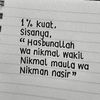 1% kuat.
Sisanya,
" Hasbunallah
wa nikmal wakil
Nikmal maula wa
Nikman nasir "